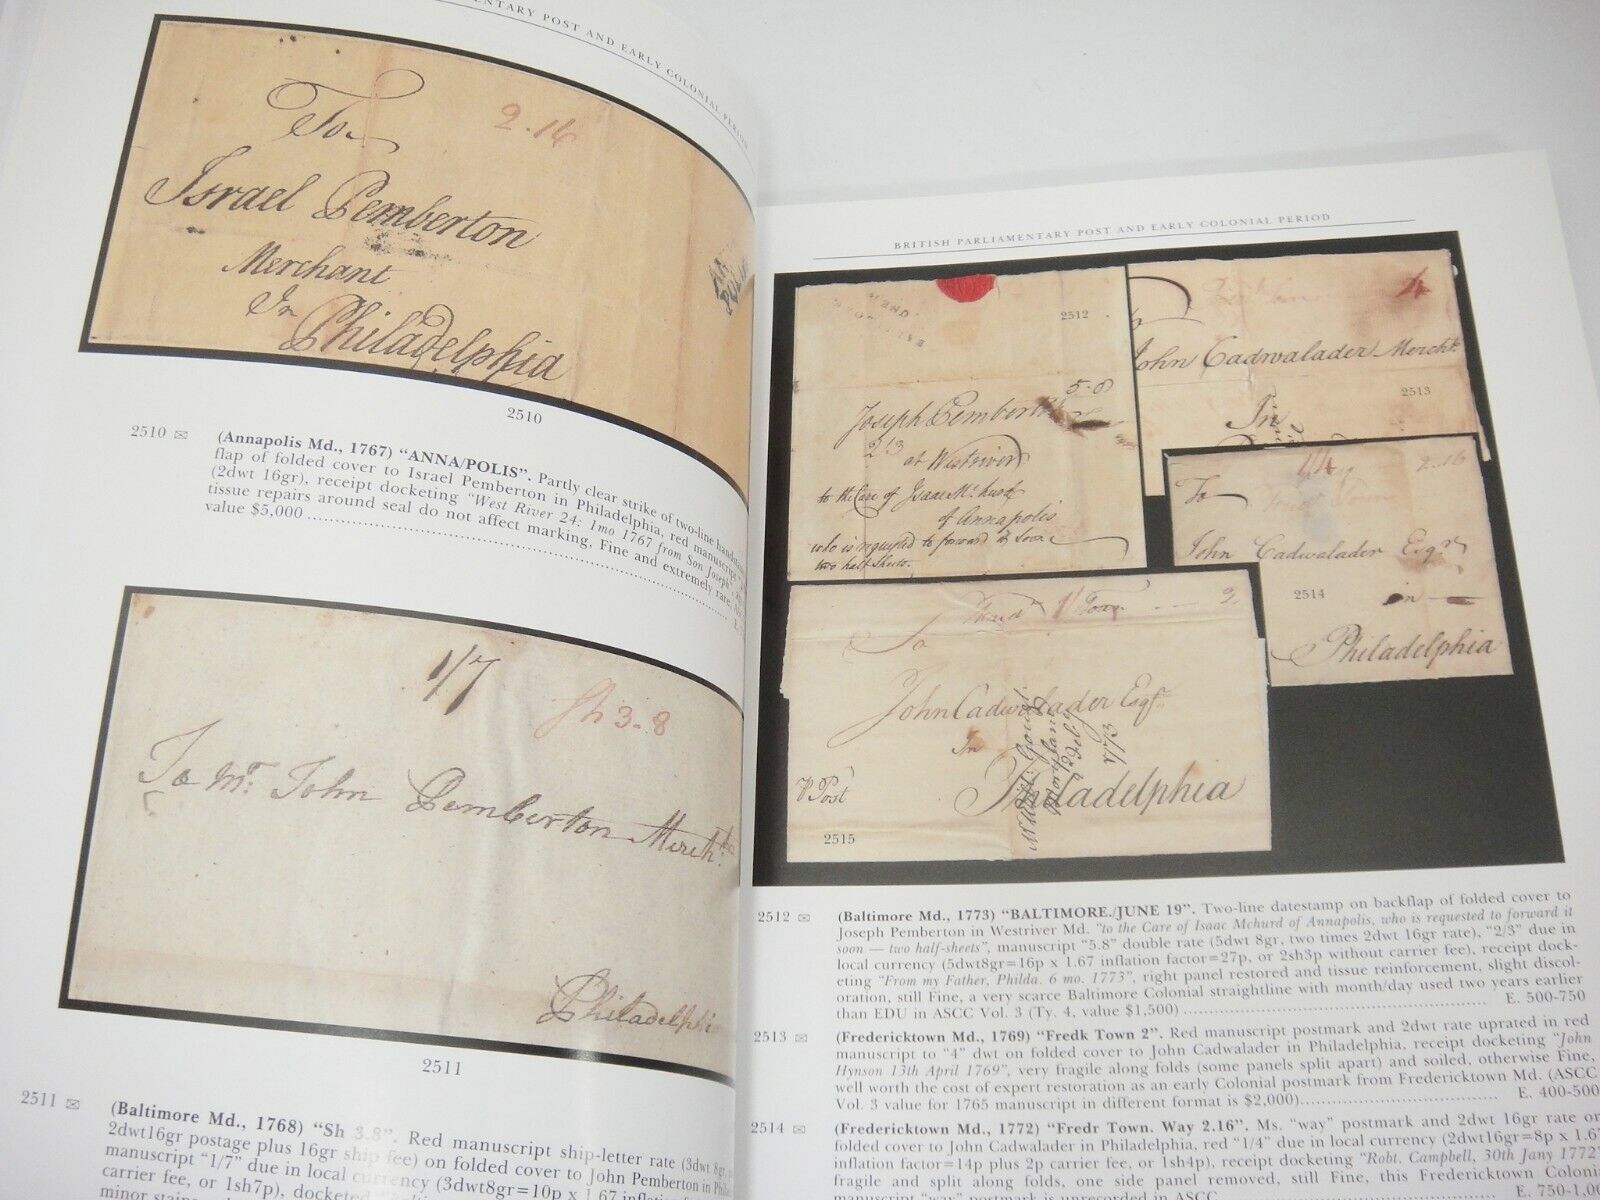 NTARY POST AND EARLY COLONIAL PERIOD
To
2.16
Israel Pemberton
Merchant
In
Philadelphia
2510
2510 (Annapolis Md., 1767) “ANNA/POLIS”. Partly clear strike of two-line
flap of folded cover to Israel Pemberton in Philadelphia, red
(2dwt 16gr), receipt docketing “West River 24: 1mo 1767 from Son Joseph”
tissue repairs around seal do not affect marking, Fine and extremely rare
value $5,000
1/7
Sh 3-8
To Mr. John Pemberton Mercht.
Philadelphia
2511
2511 (Baltimore Md., 1768) “Sh 3.8”. Red manuscript ship-letter rate (3dwt 8gr,
2dwt16gr postage plus 16gr ship fee) on folded cover to John Pemberton in
manuscript “1/7” due in local currency (3dwt8gr=10p x 1.67 inflation
carrier fee, or 1sh7p),
minor
BRITISH PARLIAMENTARY POST AND EARLY COLONIAL PERIOD
2512
5-8
Joseph Pemberton
2/3
at Westriver
to the Care of Isaac
of Annapolis
who is requested to forward it Soon
two half Sheets.
4
John Cadwalader Mercht.
2513
In
1/4
2.16
To
John Cadwalader Esqr
2514
in
Philadelphia
2
To
John Cadwalader Esqr.
In
Philadelphia
Maryland
1773
P Post
2515
2512 (Baltimore Md., 1773) “BALTIMORE./JUNE 19”. Two-line datestamp on backflap of folded cover to
Joseph Pemberton in Westriver Md. “to the Care of Isaac Mchurd of Annapolis, who is requested to forward it
soon — two half-sheets”, manuscript “5.8” double rate (5dwt 8gr, two times 2dwt 16gr rate), “2/3” due in
local currency (5dwt8gr=16p x 1.67 inflation factor=27p, or 2sh3p without carrier fee), receipt dock-
eting “From my Father, Philda. 6 mo. 1773”, right panel restored and tissue reinforcement, slight discol-
oration, still Fine, a very scarce Baltimore Colonial straightline with month/day used two years earlier
than EDU in ASCC Vol. 3 (Ty. 4, value $1,500) E. 500-750
2513 (Fredericktown Md., 1769) “Fredk Town 2”. Red manuscript postmark and 2dwt rate uprated in red
manuscript to “4” dwt on folded cover to John Cadwalader in Philadelphia, receipt docketing “John
Hynson 13th April 1769”, very fragile along folds (some panels split apart) and soiled, otherwise Fine,
well worth the cost of expert restoration as an early Colonial postmark from Fredericktown Md. (ASCC
Vol. 3 value for 1765 manuscript in different format is $2,000) E. 400-500
2514 (Fredericktown Md., 1772) “Fredr Town. Way 2.16”. Ms. “way” postmark and 2dwt 16gr rate on
folded cover to John Cadwalader in Philadelphia, red “1/4” due in local currency (2dwt16gr=8p x 1.67
inflation factor=14p plus 2p carrier fee, or 1sh4p), receipt docketing “Robt. Campbell, 30th Jany 1772”
fragile and split along folds, one side panel removed, still Fine, this Fredericktown Colonial
manuscript “way” postmark is unrecorded in ASCC E. 750-1,00